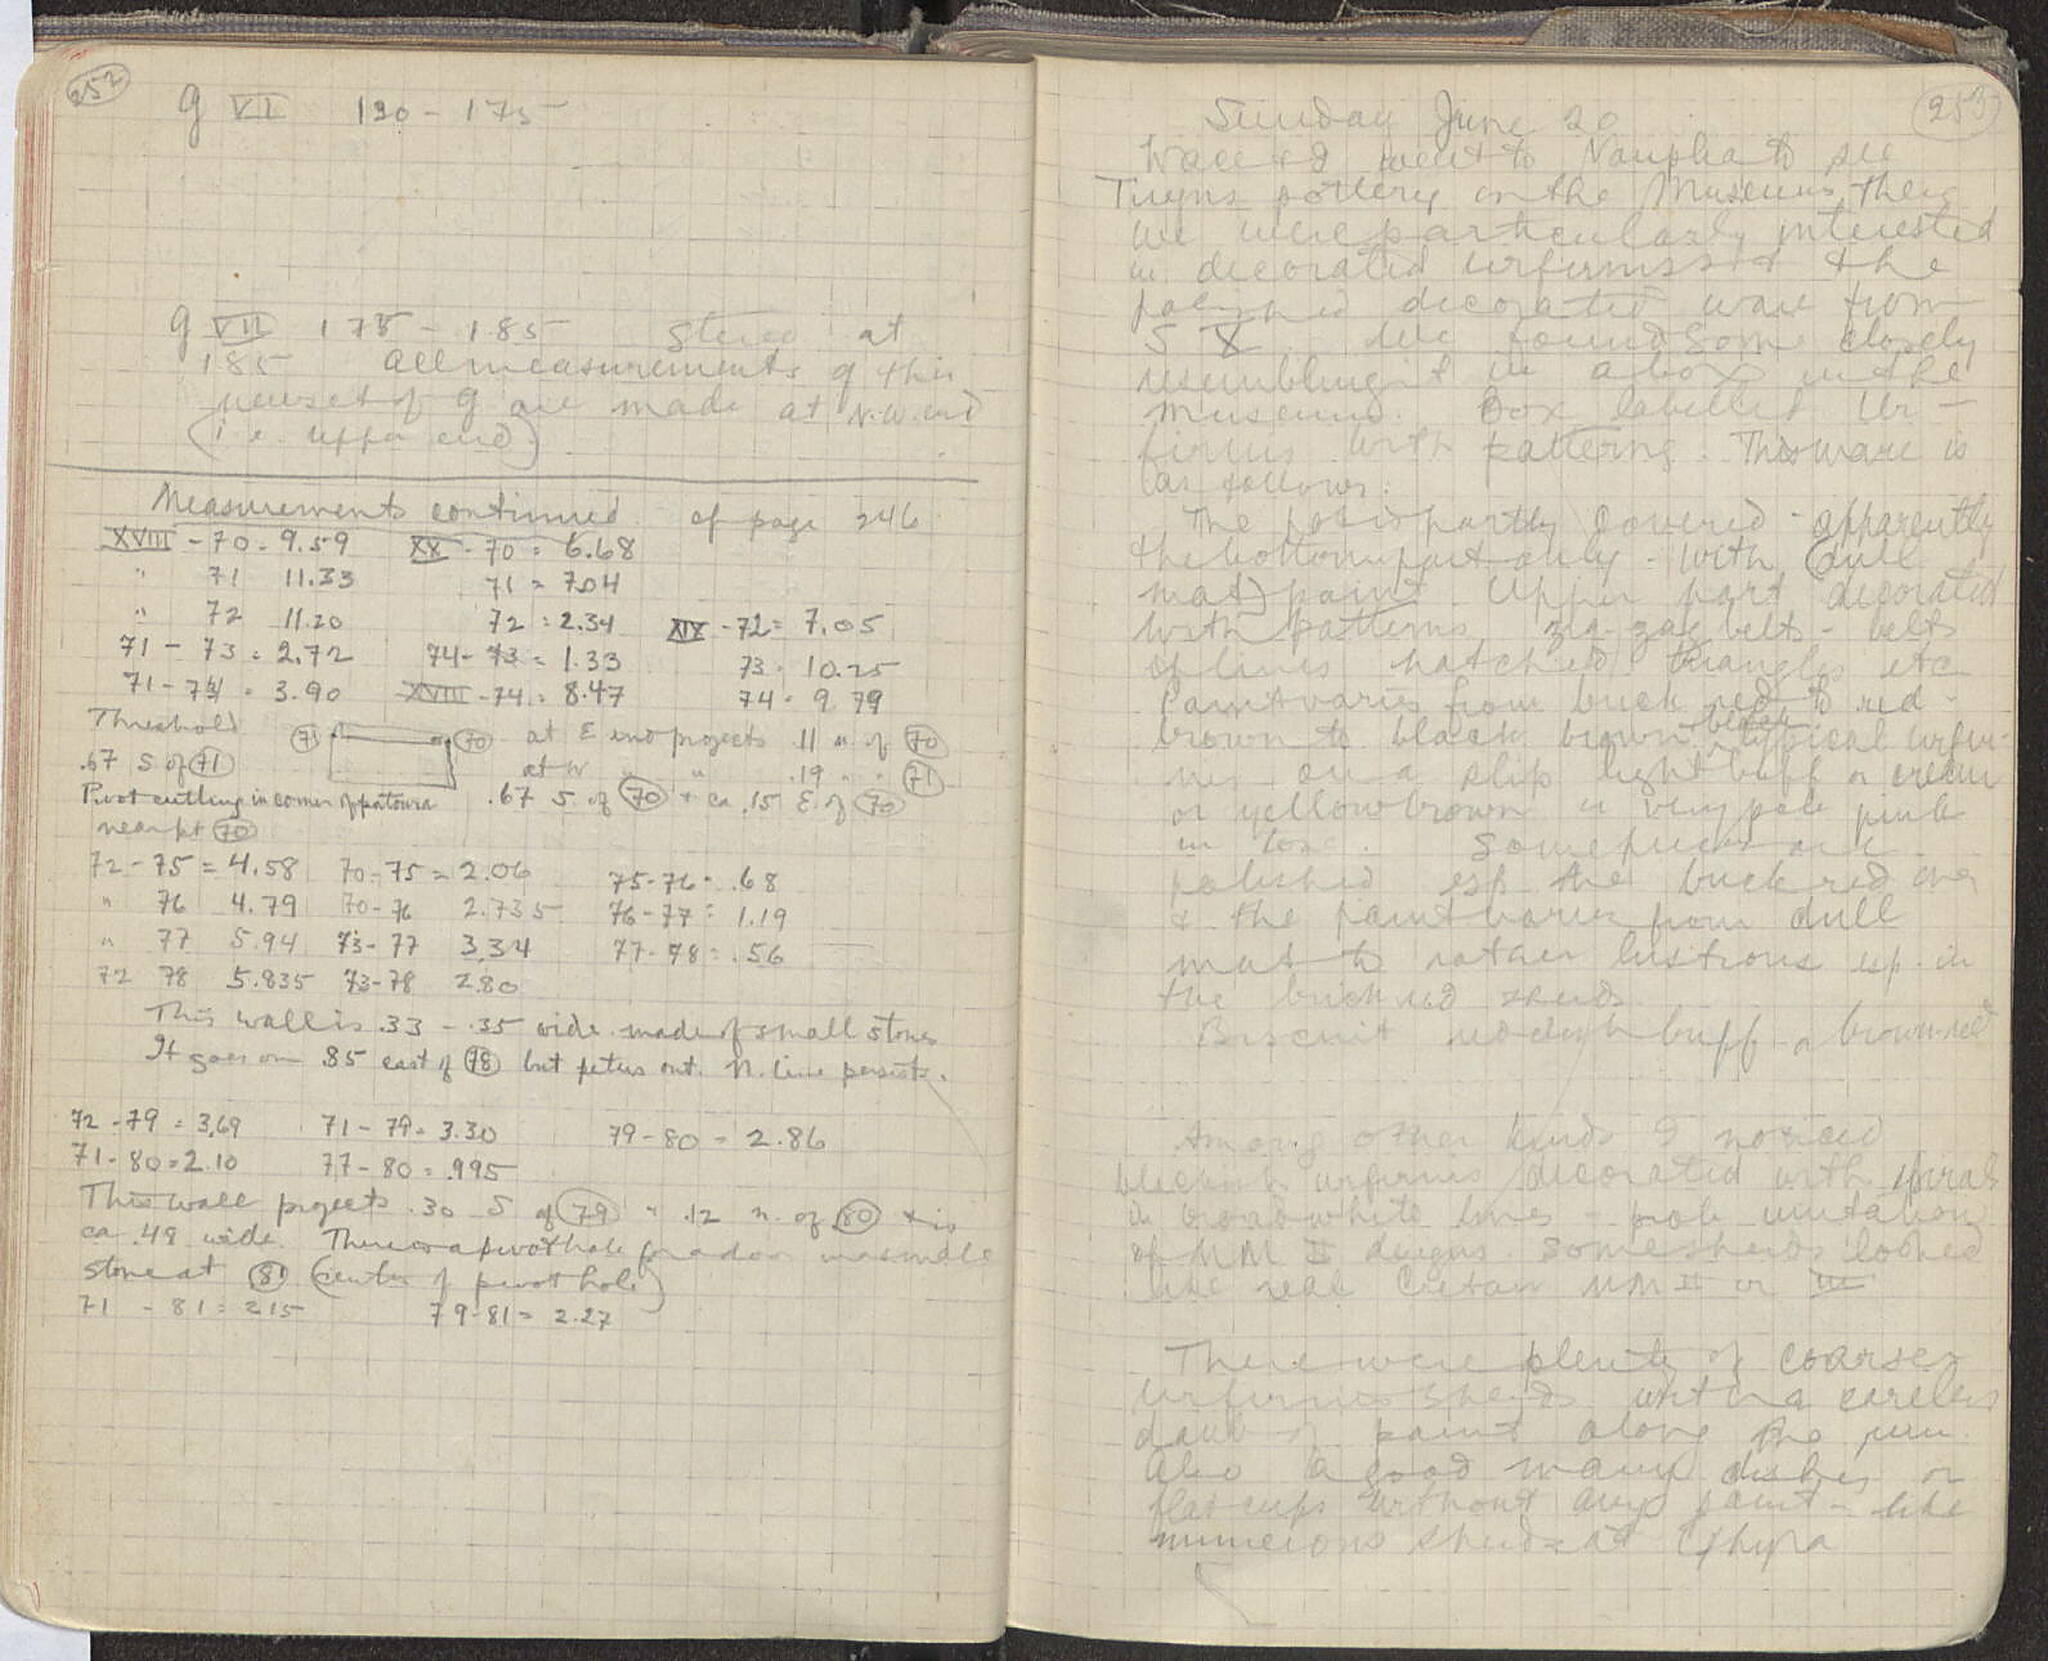 252
g VI 120 - 175
g VII 175 - 185 Stereo at
185 All measurements of this
new set of g are made at N.W. end
(i.e. upper end)
Measurements continued cf page 246
XVIII - 70 = 9.59 XX - 70 = 6.68
" 71 11.33 71 = 7.04
" 72 11.20 72 = 2.34 XIX - 72 = 7.05
71 - 73 = 2.72 74 - 73 = 1.33 73 = 10.25
71 - 74 = 3.90 XVIII - 74 = 8.47 74 = 9.79
Threshold 71 70 at E end projects .11 n. of 70
.67 S of 71 at W " .19 " " 71
Pivot cutting in corner of patoura .67 S. of 70 + ca .15 E. of 70
near pt 70
72 - 75 = 4.58 70 - 75 = 2.06 75 - 76 = .68
" 76 4.79 70 - 76 2.735 76 - 77 = 1.19
" 77 5.94 73 - 77 3.34 77 - 78 = .56
72 78 5.835 73 - 78 2.80
This wall is .33 - .35 wide made of small stones
It goes on .85 east of 78 but peters out. N. line persists.
72 - 79 = 3.69 71 - 79 = 3.30 79 - 80 = 2.86
71 - 80 = 2.10 77 - 80 = .995
This wall projects .30 S of 79 " .12 n. of 80 + is
ca .48 wide. There is a pivot hole for a door in a small
stone at 81 (center of pivot hole)
71 - 81 = 2.15 79 - 81 = 2.27
253
Sunday June 20
Wace & I went to Nauplia to see
Tiryns pottery in the Museum there
we were particularly interested
in decorated urfirniss & the
polished decorated ware from
S X. We found some closely
resembling it in a box in the
museum. Box labelled Ur-
firnis with patterns. This ware is
as follows:
The pot is partly covered - apparently
the bottom part only - with (dull
mat) paint. Upper part decorated
with patterns zig-zag belts - belts
of lines hatched triangles etc
Paint varies from brick red to red-
brown to black brown black typical urfir-
nis on a slip light buff or cream
or yellow brown or very pale pink
in tone. Some pieces are
polished esp. the brick red ones
& the paint varies from dull
mat to rather lustrous esp. in
the brick red sherds
Biscuit reddish buff or brown-red
Among other kinds I noticed
blackish urfirnis decorated with spirals
in broad white lines - prob imitations
of MM II designs. Some sherds looked
like real Cretan MM II or III
There were plenty of coarser
urfirnis sherds with a careless
daub of paint along the rim.
Also a good many dishes or
flat cups without any paint - like
numerous sherds at